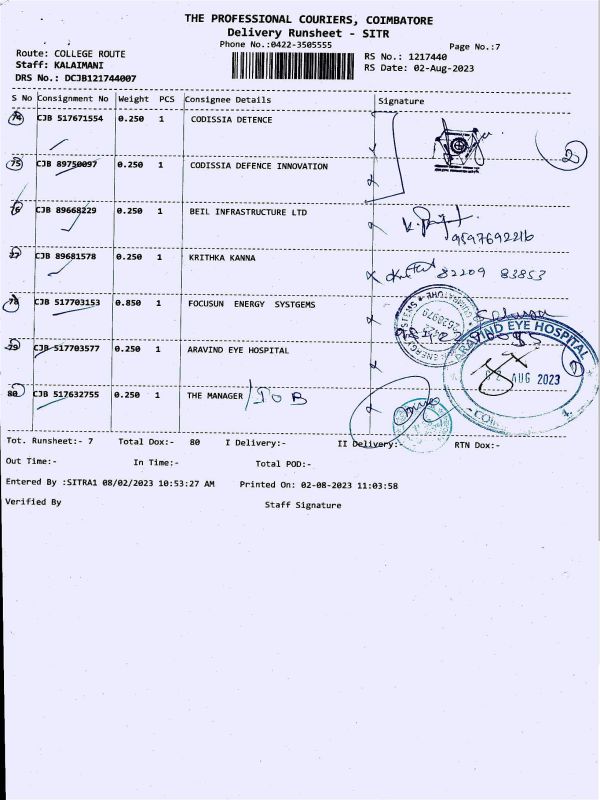 THE PROFESSIONAL COURIERS, COIMBATORE
Delivery Runsheet - SITR
Phone No.:0422-3505555
Page No.:7
Route: COLLEGE ROUTE
RS No.: 1217440
Staff: KALAIMANI
RS Date: 02-Aug-2023
DRS No.: DCJB121744007
S No Consignment No Weight PCS Consignee Details Signature
74 CJB 517671554 0.250 1 CODISSIA DETENCE
75 CJB 89750097 0.250 1 CODISSIA DEFENCE INNOVATION
76 CJB 89668229 0.250 1 BEIL INFRASTRUCTURE LTD
9597692216
77 CJB 89681578 0.250 1 KRITHKA KANNA
82209 83853
78 CJB 517703153 0.850 1 FOCUSUN ENERGY SYSTGEMS
79 CJB 517703577 0.250 1 ARAVIND EYE HOSPITAL
ARAVIND EYE HOSPITAL
AUG 2023
80 CJB 517632755 0.250 1 THE MANAGER / IOB
Tot. Runsheet:- 7 Total Dox:- 80 I Delivery:- II Delivery:- RTN Dox:-
Out Time:- In Time:- Total POD:-
Entered By :SITRA1 08/02/2023 10:53:27 AM Printed On: 02-08-2023 11:03:58
Verified By Staff Signature